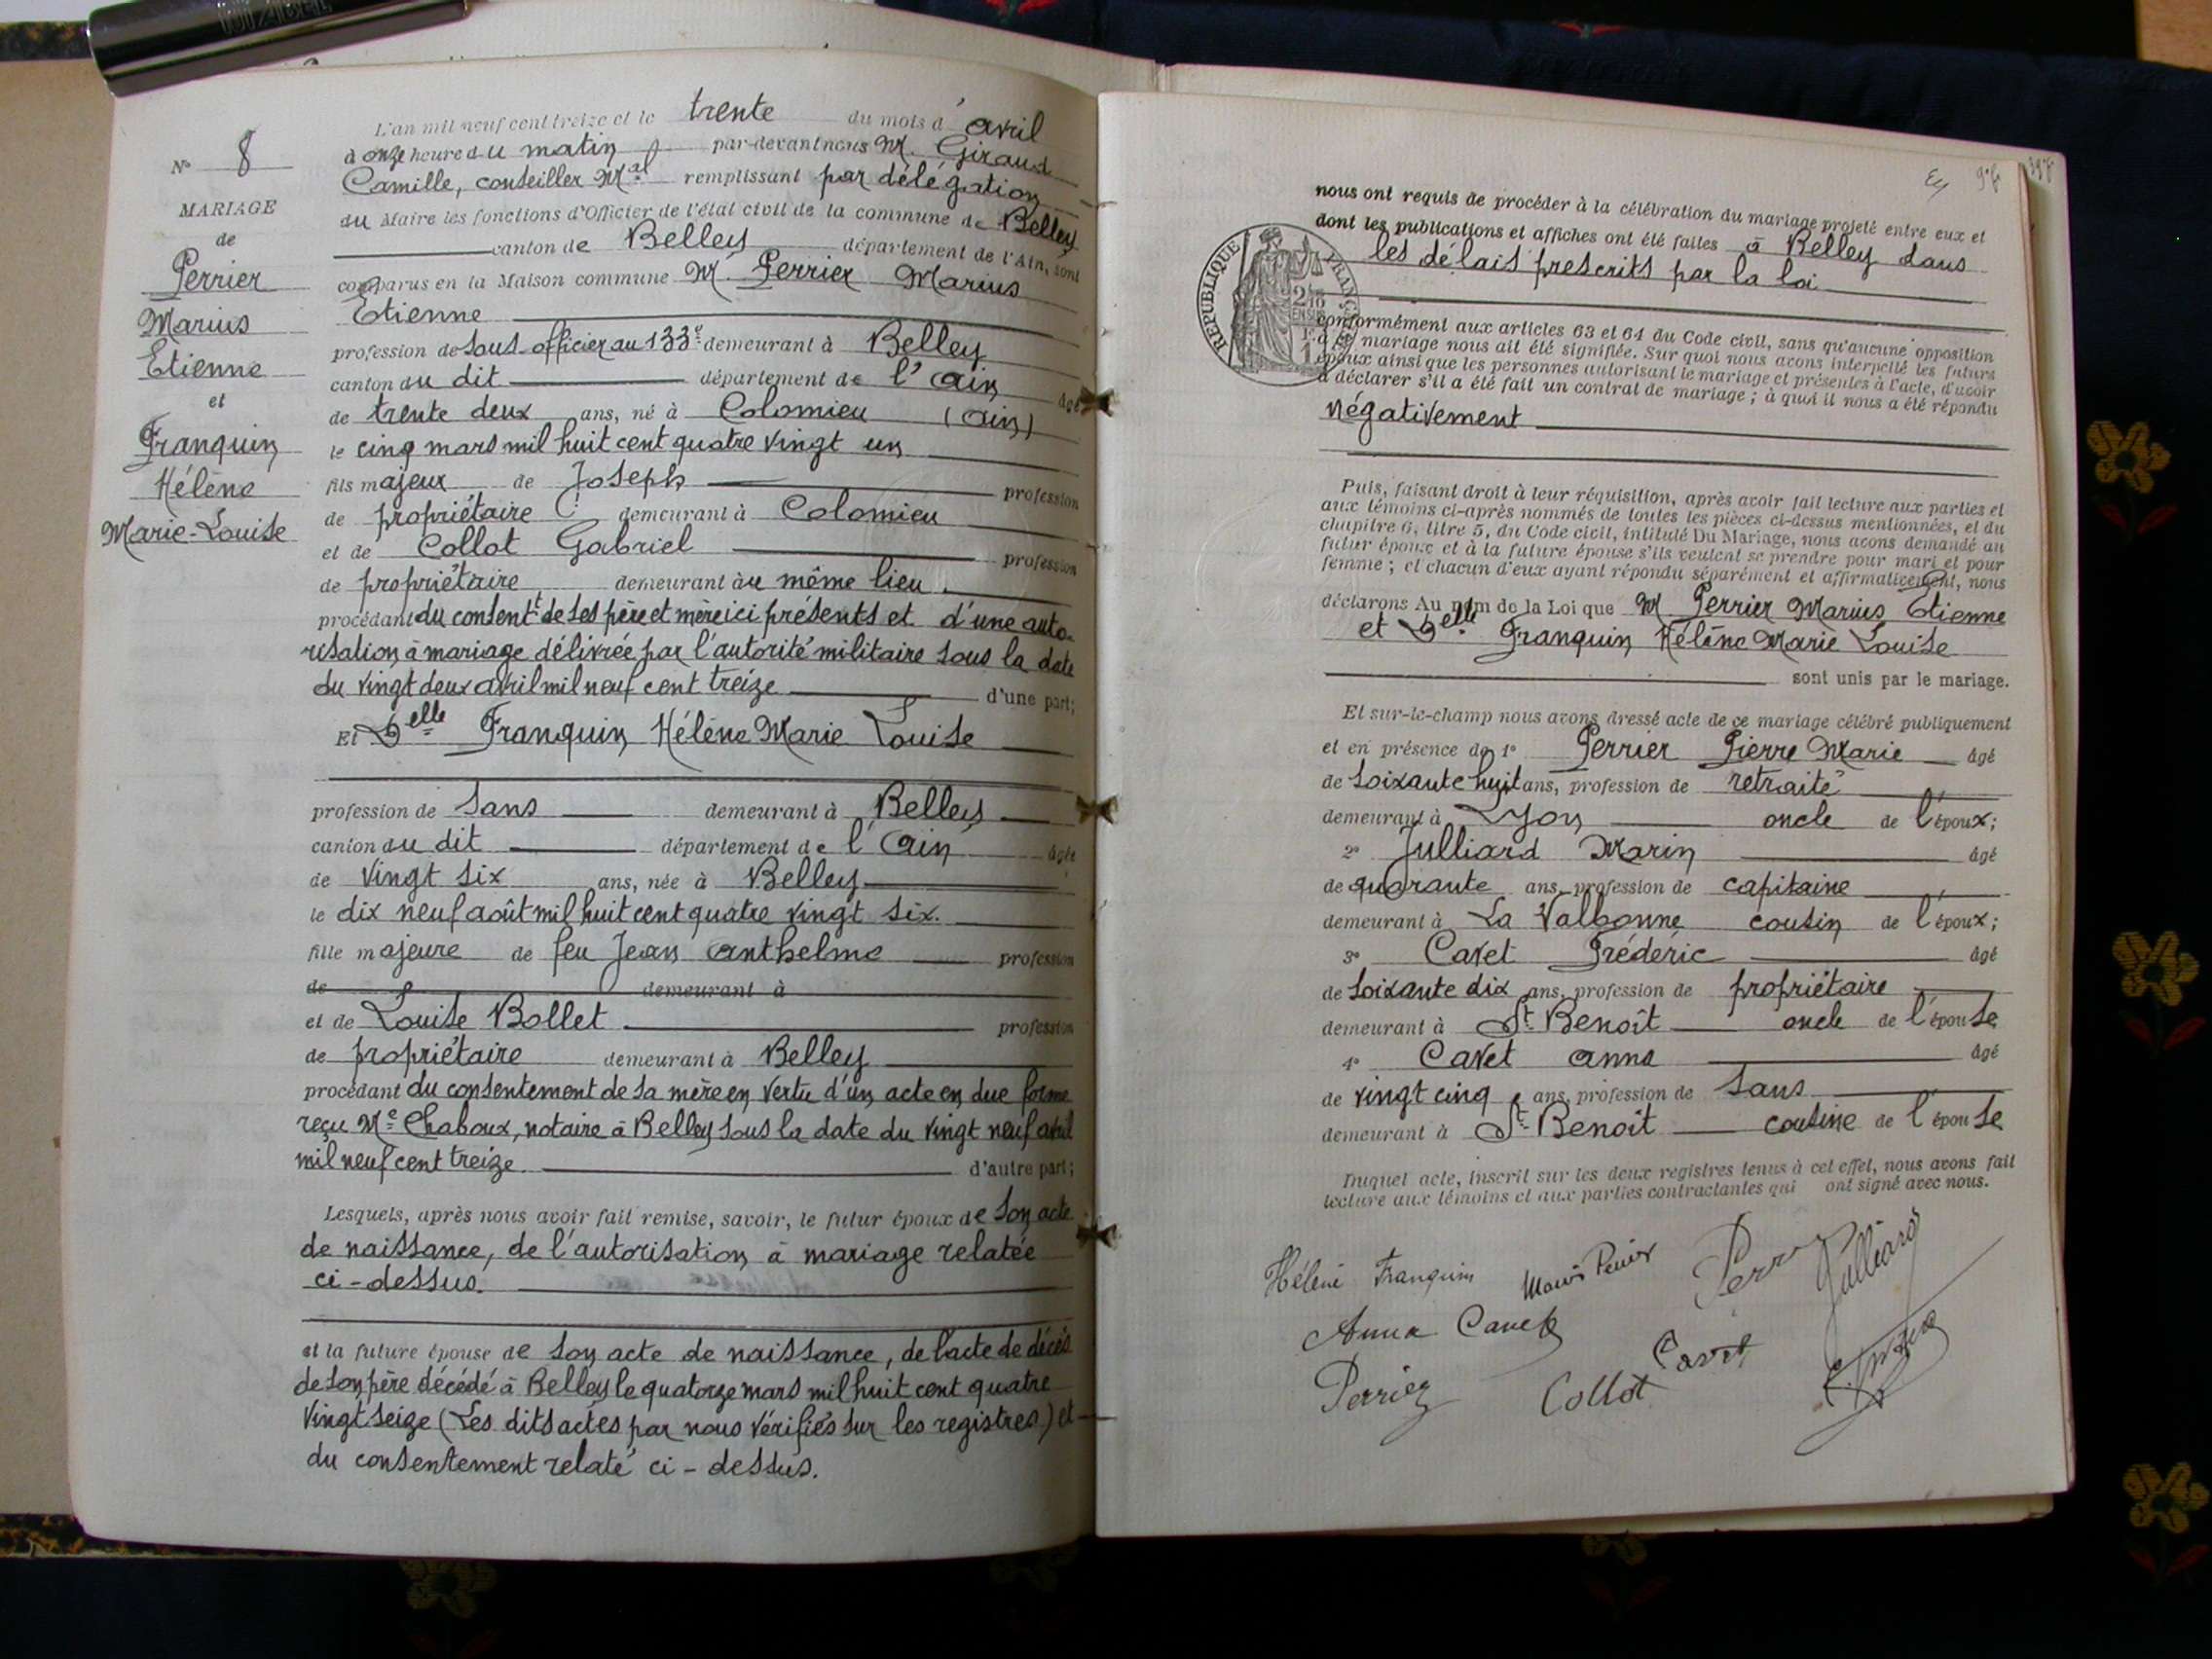 N° 8
MARIAGE
de
Perrier
Marius
Etienne
et
Franquin
Hélène
Marie-Louise
L'an mil neuf cent treize et le trente du mois d'avril
à onze heure du matin par-devant nous M. Giraud
Camille, conseiller Mal remplissant par délégation
du Maire les fonctions d'Officier de l'état civil de la commune de Belley
canton de Belley département de l'Ain, sont
comparus en la Maison commune Mr. Perrier Marius
Etienne
profession de sous-officier au 133e demeurant à Belley
canton du dit département de l'Ain âgé
de trente deux ans, né à Colomieu (Ain)
le cinq mars mil huit cent quatre vingt un
fils majeur de Joseph profession
de propriétaire demeurant à Colomieu
et de Collot Gabriel profession
de propriétaire demeurant au même lieu
procédant du consentt de ses père et mère ici présents et d'une auto-
risation à mariage délivrée par l'autorité militaire sous la date
du vingt deux avril mil neuf cent treize d'une part;
Et Delle Franquin Hélène Marie Louise
profession de sans demeurant à Belley
canton du dit département de l'Ain âgée
de vingt six ans, née à Belley
le dix neuf août mil huit cent quatre vingt six.
fille majeure de feu Jean Anthelme profession
de demeurant à
et de Louise Bollet profession
de propriétaire demeurant à Belley
procédant du consentement de sa mère en vertu d'un acte en due forme
reçu Me Chaboux, notaire à Belley sous la date du vingt neuf avril
mil neuf cent treize d'autre part;
Lesquels, après nous avoir fait remise, savoir, le futur époux de son acte
de naissance, de l'autorisation à mariage relatée
ci-dessus.
et la future épouse de son acte de naissance, de l'acte de décès
de son père décédé à Belley le quatorze mars mil huit cent quatre
vingt seize (Les dits actes par nous vérifiés sur les registres) et
du consentement relaté ci-dessus.
nous ont requis de procéder à la célébration du mariage projeté entre eux et
dont les publications et affiches ont été faites à Belley dans
les délais prescrits par la loi
RÉPUBLIQUE FRANÇAISE
conformément aux articles 63 et 64 du Code civil, sans qu'aucune opposition
à ce mariage nous ait été signifiée. Sur quoi nous avons interpellé les futurs
époux ainsi que les personnes autorisant le mariage et présentes à l'acte, d'avoir
à déclarer s'il a été fait un contrat de mariage; à quoi il nous a été répondu
négativement
Puis, faisant droit à leur réquisition, après avoir fait lecture aux parties et
aux témoins ci-après nommés de toutes les pièces ci-dessus mentionnées, et du
chapitre 6, titre 5, du Code civil, intitulé Du Mariage, nous avons demandé au
futur époux et à la future épouse s'ils veulent se prendre pour mari et pour
femme; et chacun d'eux ayant répondu séparément et affirmativement, nous
déclarons Au nom de la Loi que M Perrier Marius Etienne
et Delle Franquin Hélène Marie Louise
sont unis par le mariage.
Et sur-le-champ nous avons dressé acte de ce mariage célébré publiquement
et en présence de 1° Perrier Pierre Marie âgé
de soixante huit ans, profession de retraité
demeurant à Lyon oncle de l'époux;
2° Julliard Marin âgé
de quarante ans, profession de capitaine
demeurant à La Valbonne cousin de l'époux;
3° Cavet Frédéric âgé
de soixante dix ans, profession de propriétaire
demeurant à St Benoît oncle de l'épouse
4° Cavet Anna âgé
de vingt cinq ans, profession de sans
demeurant à St Benoît cousine de l'épouse
Duquel acte, inscrit sur les deux registres tenus à cet effet, nous avons fait
lecture aux témoins et aux parties contractantes qui ont signé avec nous.
Hélène Franquin Marius Perrier Perrier Julliard
Anna Cavet Cavet
Perrier Collot